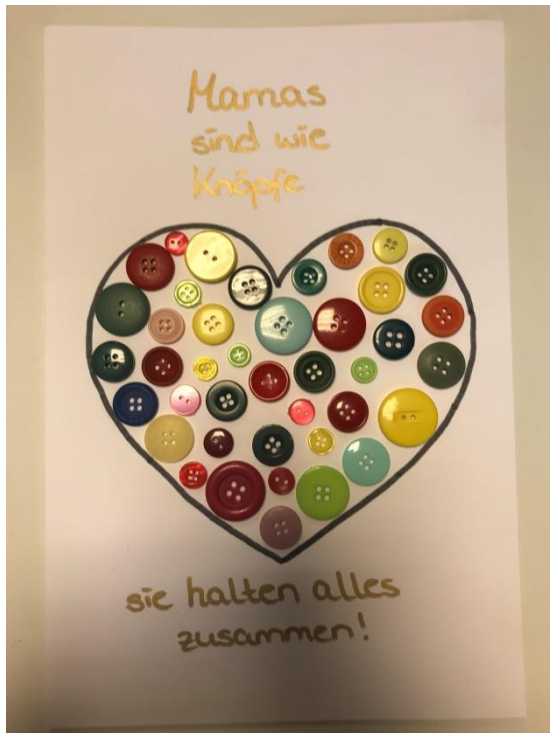 Mamas
sind wie
Knöpfe
sie halten alles
zusammen!